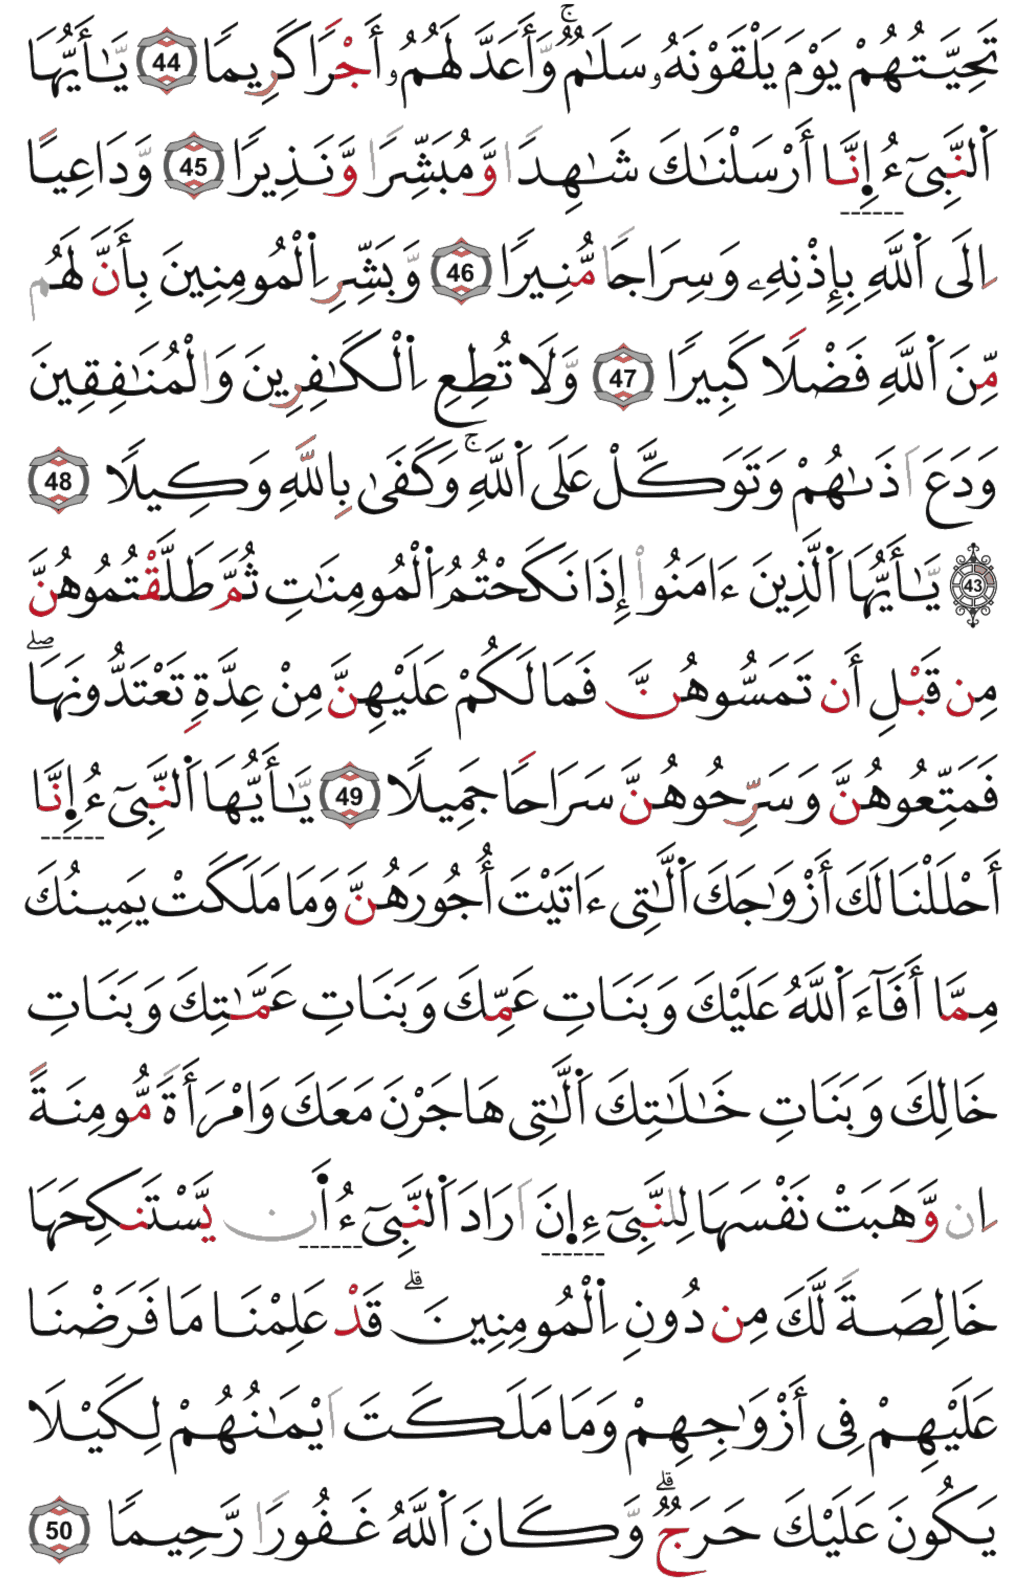 تَحِيَّتُهُمْ يَوْمَ يَلْقَوْنَهُۥ سَلَٰمٌۚ وَّأَعَدَّ لَهُمُۥ أَجْرًا كَرِيمًا 44 يَّـٰأَيُّهَا
اَ۬لنَّبِيٓءُ اِ۪نَّا أَرْسَلْنَٰكَ شَٰهِدًا وَّمُبَشِّرًا وَّنَذِيرًا 45 وَّدَاعِيًا
اِلَى اَ۬للَّهِ بِإِذْنِهِۦ وَسِرَاجًا مُّنِيرًا 46 وَّبَشِّرِ اِ۬لْمُومِنِينَ بِأَنَّ لَهُم
مِّنَ اَ۬للَّهِ فَضْلًا كَبِيرًا 47 وَّلَا تُطِعِ اِ۬لْكَٰفِرِينَ وَالْمُنَٰفِقِينَ
وَدَعَ اَذَىٰهُمْ وَتَوَكَّلْ عَلَى اَ۬للَّهِۚ وَكَفَىٰ بِاللَّهِ وَكِيلًا 48
43 يَّـٰأَيُّهَا اَ۬لَّذِينَ ءَامَنُوا۟ إِذَا نَكَحْتُمُ اُ۬لْمُومِنَٰتِ ثُمَّ طَلَّقْتُمُوهُنَّ
مِن قَبْلِ أَن تَمَسُّوهُنَّ فَمَا لَكُمْ عَلَيْهِنَّ مِنْ عِدَّةٍ تَعْتَدُّونَهَاۖ
فَمَتِّعُوهُنَّ وَسَرِّحُوهُنَّ سَرَاحًا جَمِيلًا 49 يَّـٰأَيُّهَا اَ۬لنَّبِيٓءُ اِ۪نَّا
أَحْلَلْنَا لَكَ أَزْوَٰجَكَ اَ۬لَّٰتِي ءَاتَيْتَ أُجُورَهُنَّ وَمَا مَلَكَتْ يَمِينُكَ
مِمَّا أَفَآءَ اَ۬للَّهُ عَلَيْكَ وَبَنَاتِ عَمِّكَ وَبَنَاتِ عَمَّٰتِكَ وَبَنَاتِ
خَالِكَ وَبَنَاتِ خَٰلَٰتِكَ اَ۬لَّٰتِي هَاجَرْنَ مَعَكَ وَامْرَأَةً مُّومِنَةً
اِن وَّهَبَتْ نَفْسَهَا لِلنَّبِيٓءِ اِ۪نَ اَرَادَ اَ۬لنَّبِيٓءُ اَ۬ن يَّسْتَنكِحَهَا
خَالِصَةً لَّكَ مِن دُونِ اِ۬لْمُومِنِينَۗ قَدْ عَلِمْنَا مَا فَرَضْنَا
عَلَيْهِمْ فِي أَزْوَٰجِهِمْ وَمَا مَلَكَتَ اَيْمَٰنُهُمْ لِكَيْلَا
يَكُونَ عَلَيْكَ حَرَجٌۗ وَّكَانَ اَ۬للَّهُ غَفُورًا رَّحِيمًا 50